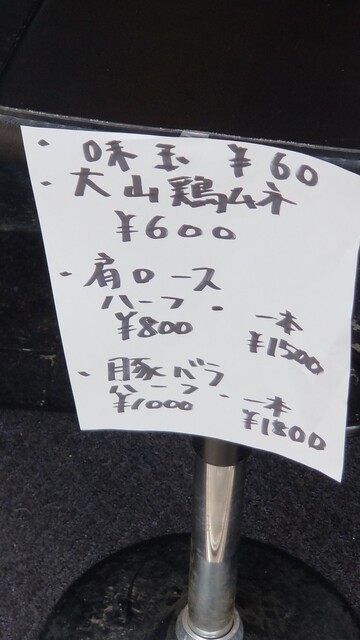 ・味玉 ¥60
・大山鶏ムネ
¥600
・肩ロース
ハーフ・ 一本
¥800 ¥1500
・豚バラ
ハーフ・ 一本
¥1000 ¥1800